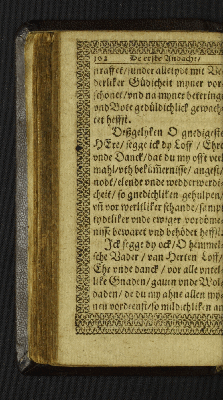 102 De erste Andacht/
straffet/ sunder alletydt mit Ve-
derliker Güdicheit myner vor-
schonet/ vnd na myner bekeringe
vnd Bote gedüldichlick gewach-
tet heffst.
Deßgelyken O gnedigste
HEre/ segge ick dy Loff/ Ehre
vnde Danck/ dat du my offt veel-
mahl vth bekümmernisse/ angest/
nodt/ elende vnde wedderwerdi-
cheit/ so gnedichliken gehulpen/
vñ vor werltliker schande/ sampt
tydtliker vnde ewiger vordöme-
nisse bewaret vnd behödet heffst.
Ick segge dy ock/ O hemmel-
sche Vader/ van Herten Loff/
Ehr vnde danck/ vor alle vntel-
like Gnaden/ gauen vnde Wol-
daden/ de du my ahne allen my-
nen vordenst/ so mildichliken an